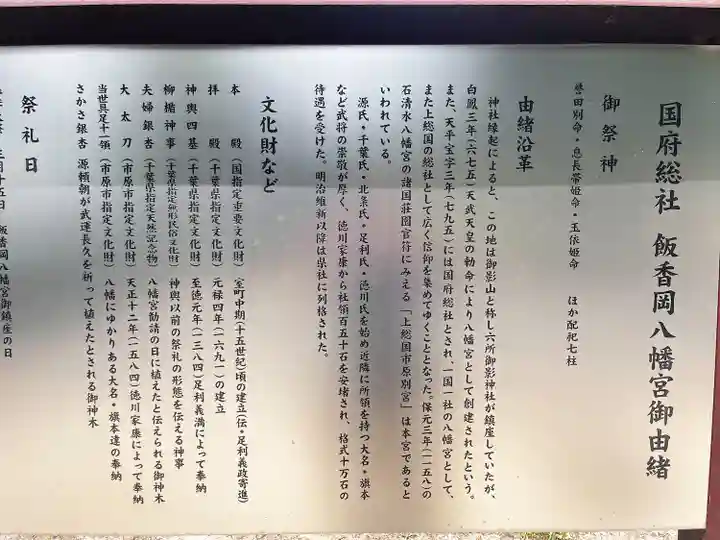 国府総社 飯香岡八幡宮御由緒
御祭神
誉田別命・息長帯姫命・玉依姫命 ほか配祀七柱
由緒沿革
神社縁起によると、この地は御影山と称し六所御影神社が鎮座していたが、
白鳳三年(六七五)天武天皇の勅命により八幡宮として創建されたという。
また、天平宝字三年(七五九)には国府総社とされ、一国一社の八幡宮として、
また上総国の総社として広く信仰を集めてゆくこととなった。保元三年(一一五八)の
石清水八幡宮の諸国荘園官符にみえる「上総国市原別宮」は本宮であると
いわれている。
源氏・千葉氏・北条氏・足利氏・徳川氏を始め近隣に所領を持つ大名・旗本
など武将の崇敬が厚く、徳川家康から社領百五十石を安堵され、格式十万石の
待遇を受けた。明治維新以降は県社に列格された。
文化財など
本殿(国指定重要文化財) 室町中期(十五世紀)頃の建立(伝・足利義政寄進)
拝殿(千葉県指定文化財) 元禄四年(一六九一)の建立
神輿四基(千葉県指定文化財) 至徳元年(一三八四)足利義満によって奉納
柳楯神事(千葉県指定無形民俗文化財) 神輿以前の祭礼の形態を伝える神事
夫婦銀杏(千葉県指定天然記念物) 八幡宮勧請の日に植えたと伝えられる御神木
大太刀(市原市指定文化財) 天正十二年(一五八四)徳川家康によって奉納
当世具足十一領(市原市指定文化財) 八幡にゆかりある大名・旗本達の奉納
さかさ銀杏 源頼朝が武運長久を祈って植えたとされる御神木
祭礼日
月十五日 飯香岡八幡宮御鎮座の日